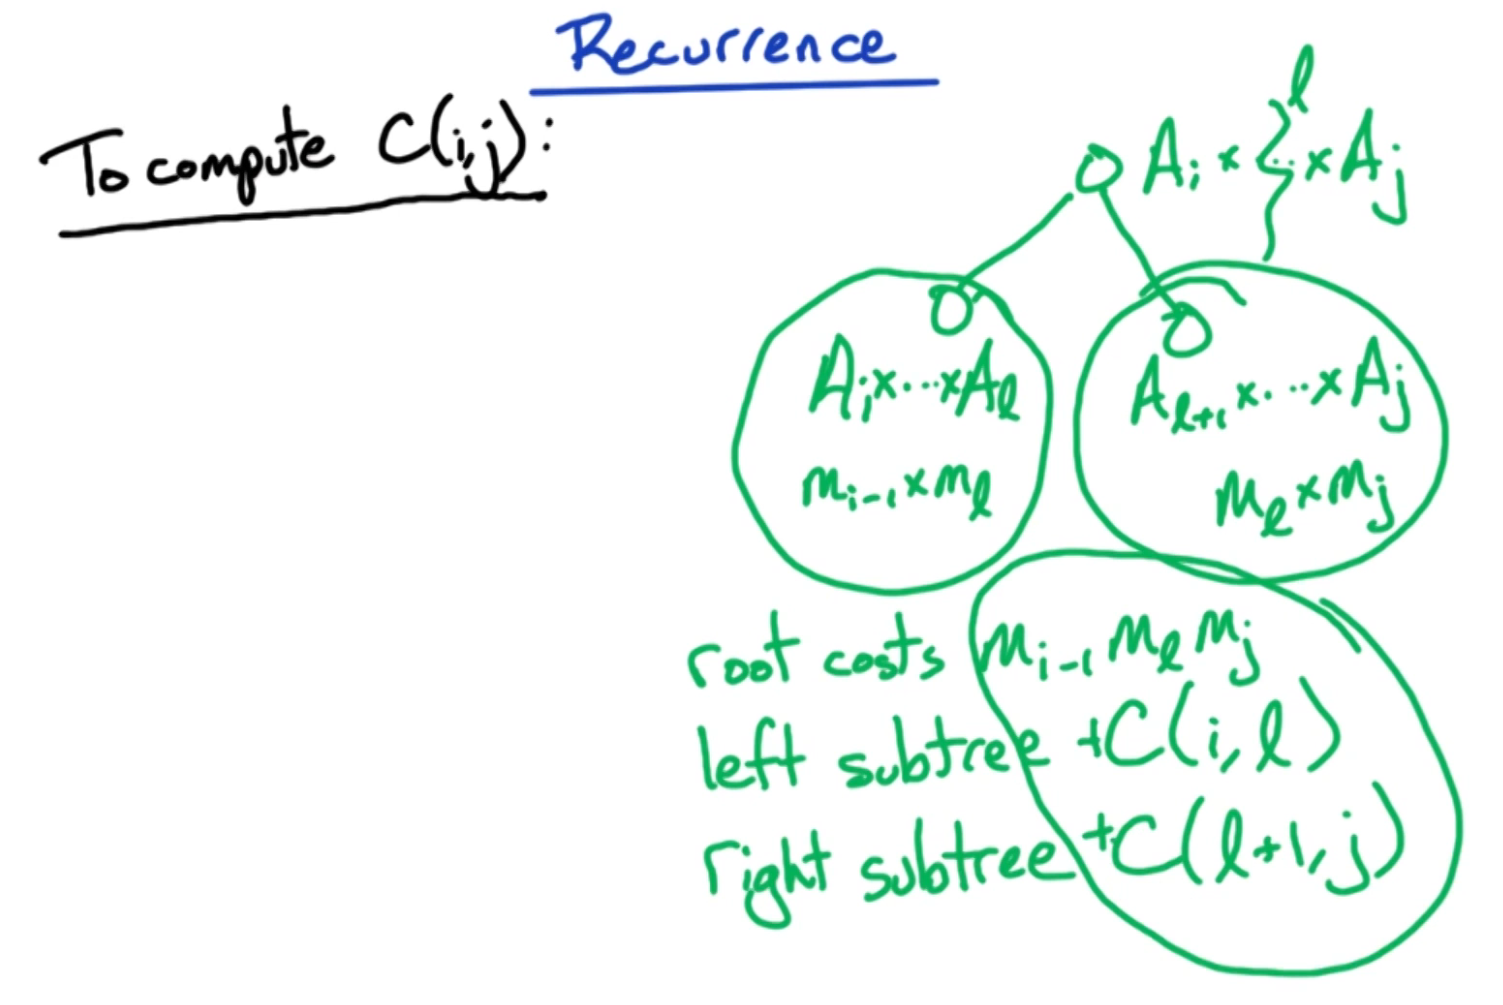 Recurrence
To compute C(i,j):
l
Aᵢ × ... × Aⱼ
Aᵢ × ... × Aₗ
mᵢ₋₁ × mₗ
Aₗ₊₁ × ... × Aⱼ
mₗ × mⱼ
root costs mᵢ₋₁ mₗ mⱼ
left subtree +C(i, l)
right subtree +C(l+1, j)